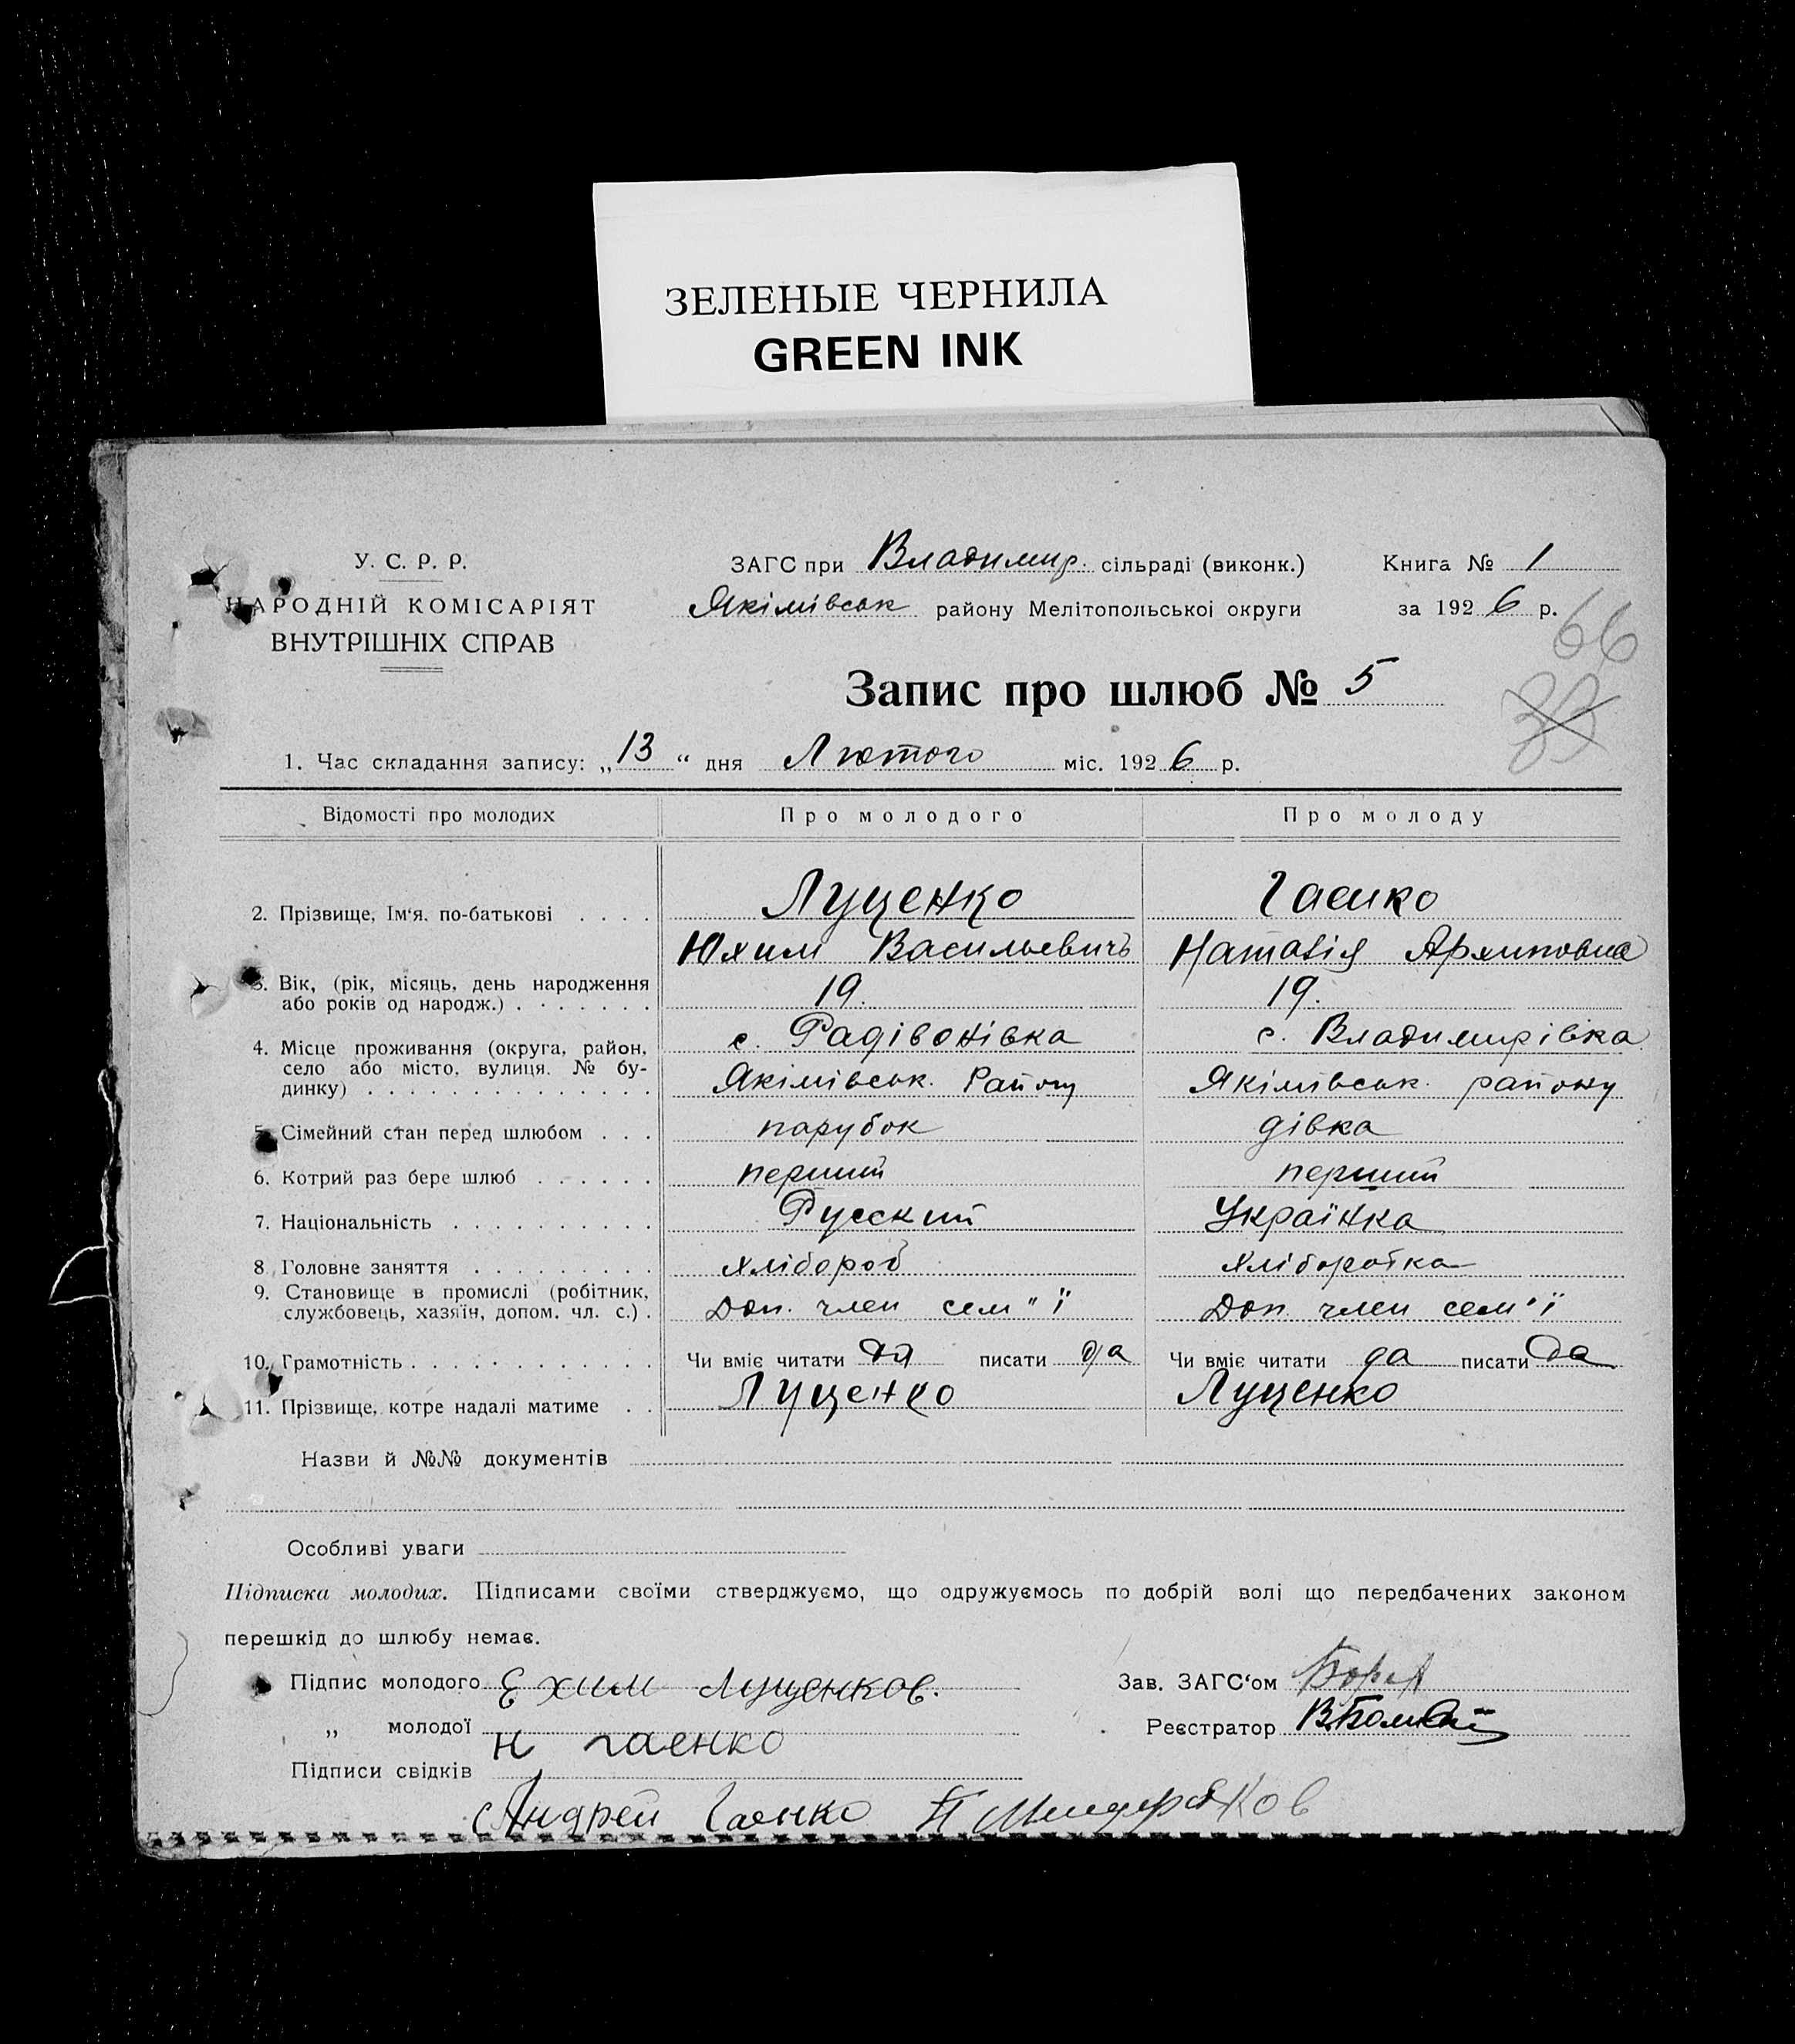 ЗЕЛЕНЫЕ ЧЕРНИЛА
GREEN INK
У. С. Р. Р.
НАРОДНІЙ КОМІСАРІЯТ
ВНУТРІШНІХ СПРАВ
ЗАГС при Владимир. сільраді (виконк.)
Якімівськ району Мелітопольської округи
Книга № 1
за 1926 р.
66
Запис про шлюб № 5
1. Час складання запису: „13“ дня Лютого міс. 1926 р.
Відомості про молодих Про молодого Про молоду
2. Прізвище, Ім‘я, по-батькові . . . . Луценко Гаенко
Юхим Васильевичъ Наталія Архиповна
3. Вік, (рік, місяць, день народження
або років од народж.) . . . . . . . 19. 19.
4. Місце проживання (округа, район, с. Радівонівка с. Владимирівка
село або місто, вулиця, № бу-
динку) . . . . . . . . . . . . . . Якімівськ. Району Якімівськ. району
5. Сімейний стан перед шлюбом . . . парубок дівка
6. Котрий раз бере шлюб . . . . . . перший перший
7. Національність . . . . . . . . . . Русский Українка
8. Головне заняття . . . . . . . . . хлібороб хліборобка
9. Становище в промислі (робітник,
службовець, хазяїн, допом. чл. с.) . Доп. член сем"ї Доп. член сем'ї
10. Грамотність . . . . . . . . . . . . Чи вміє читати да писати да Чи вміє читати да писати да
11. Прізвище, котре надалі матиме . . Луценко Луценко
Назви й №№ документів
Особливі уваги
Підписка молодих. Підписами своїми стверджуємо, що одружуємось по добрій волі що передбачених законом
перешкід до шлюбу немає.
Підпис молодого Ехим Луценков.
Зав. ЗАГС‘ом
„ молодої Н гаенко
Реєстратор
Підписи свідків
Андрей Гаенко П